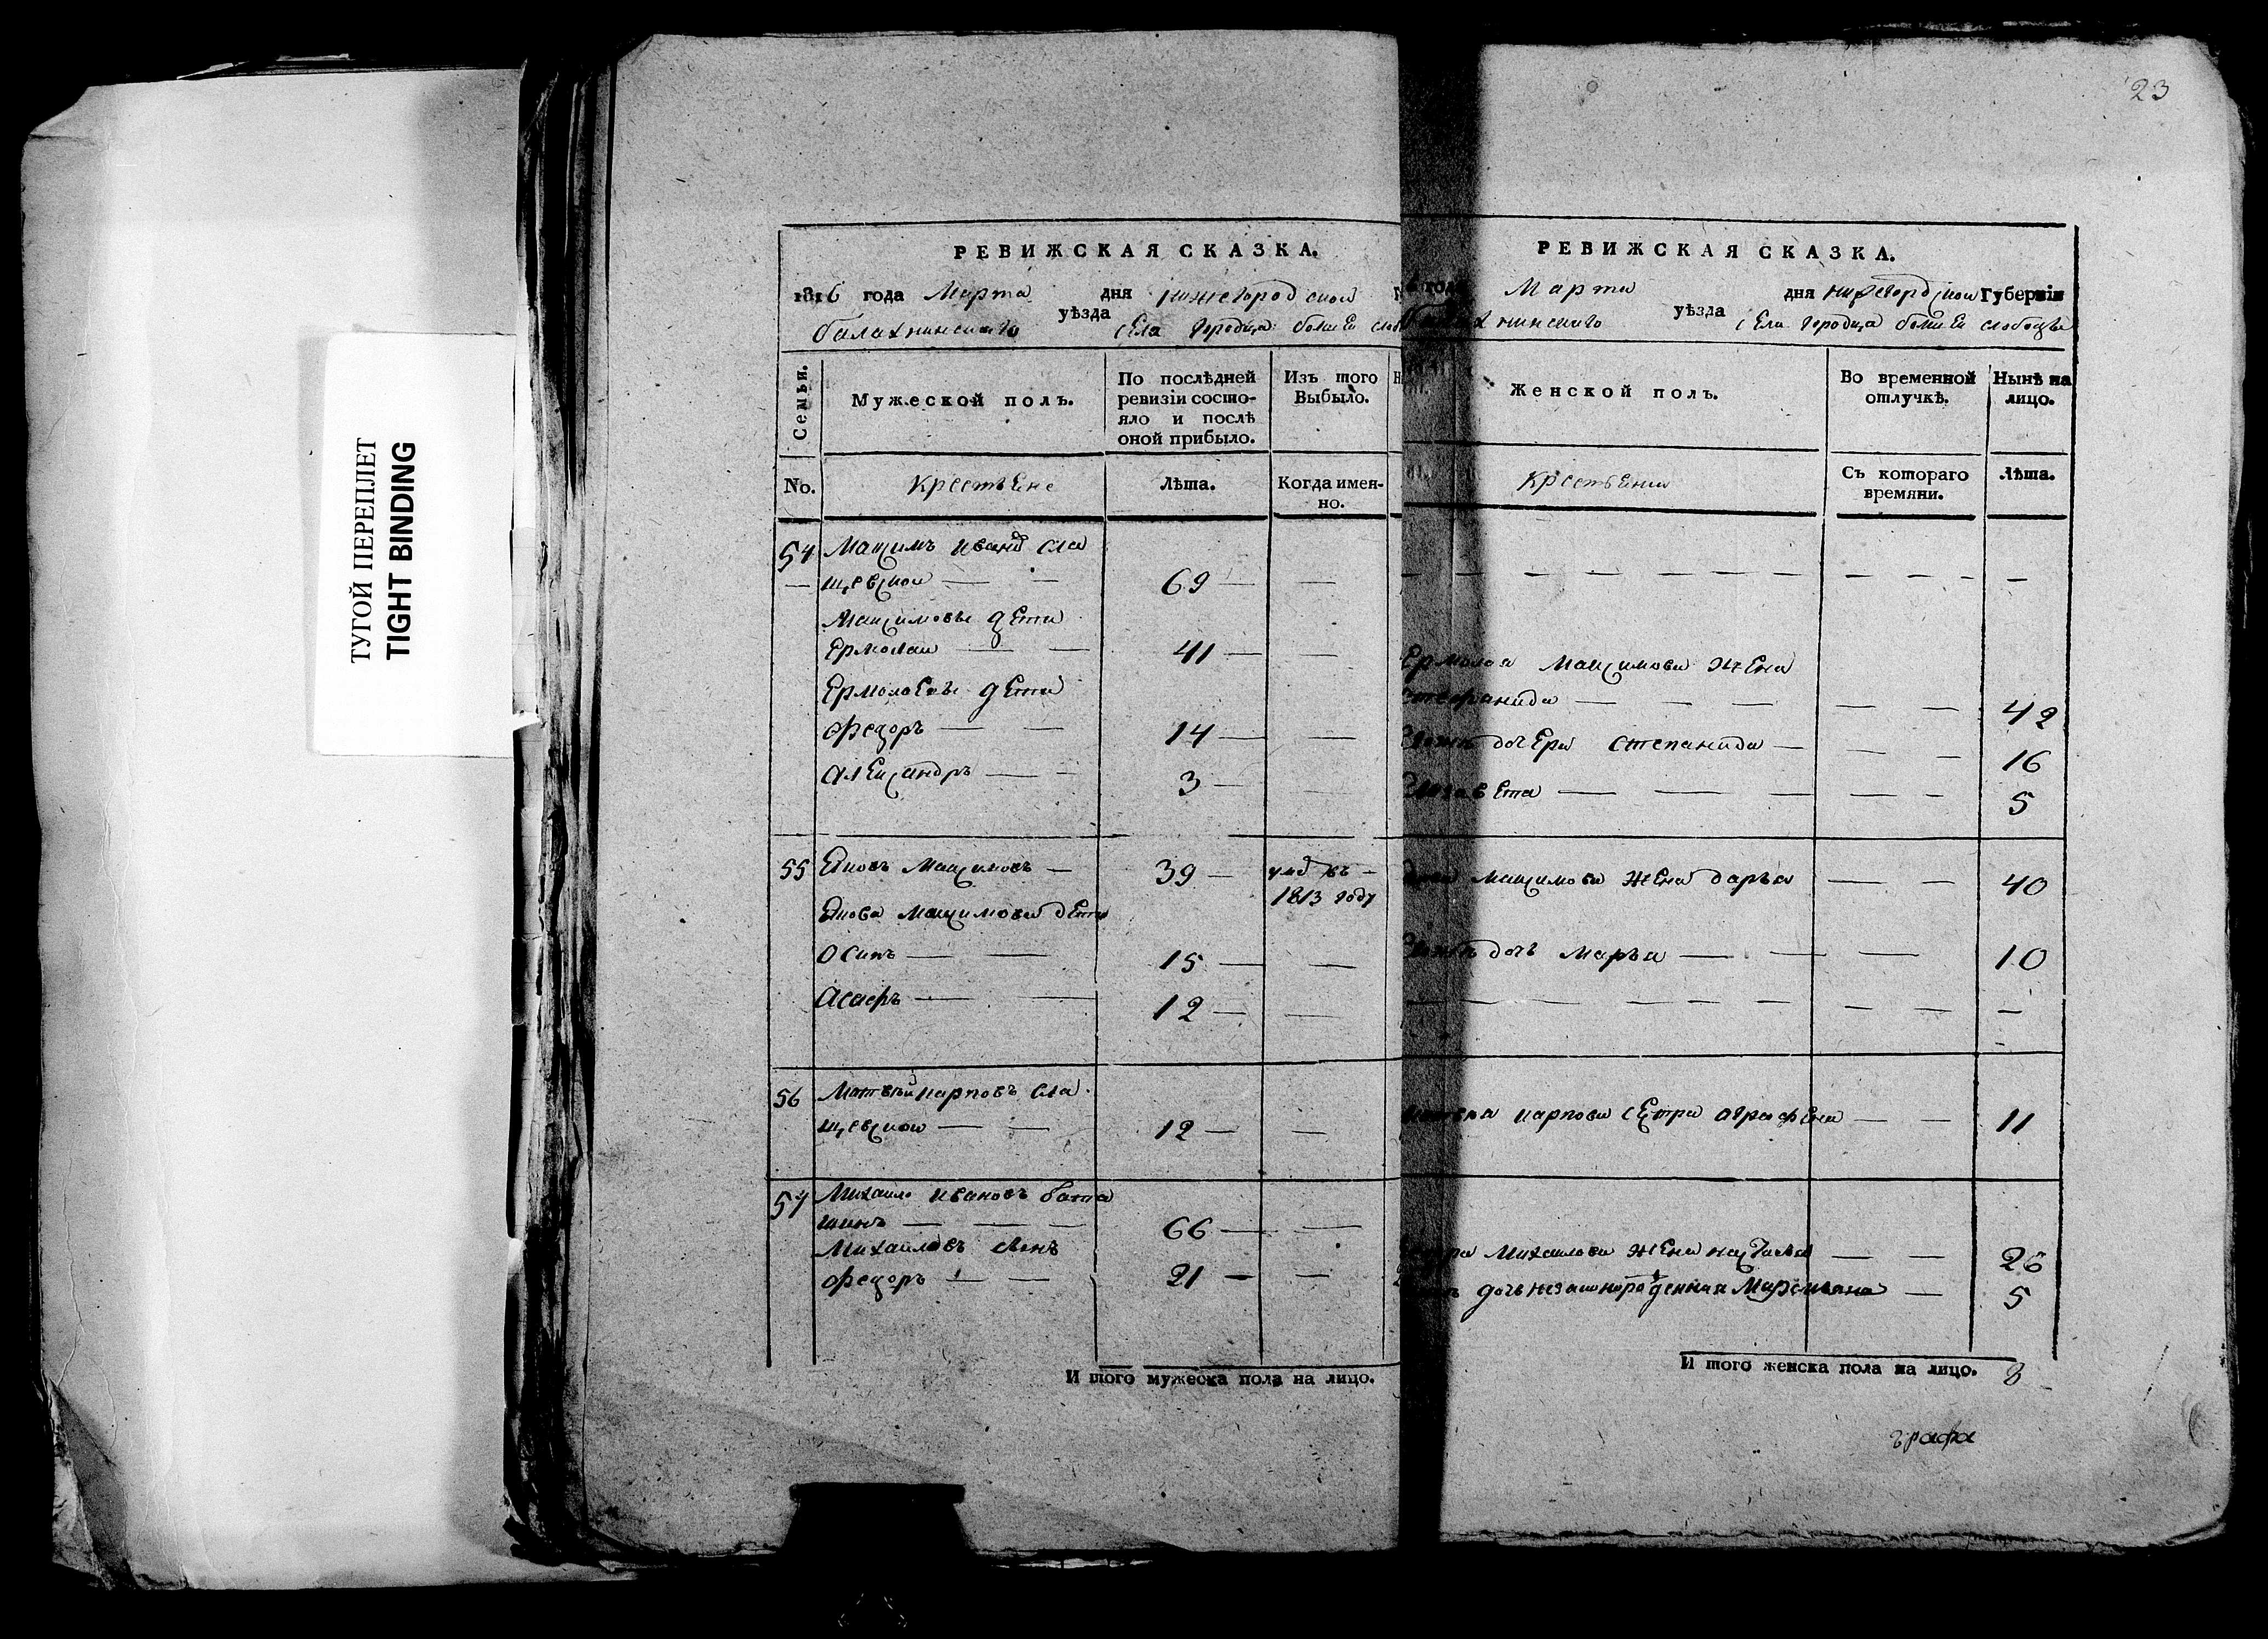 ТУГОЙ ПЕРЕПЛЕТ
TIGHT BINDING
РЕВИЖСКАЯ СКАЗКА.
1816 года Марта дня нижегородской
балахнинского уѣзда села городца болшей
Семьи.
Мужеской полъ.
По послѣдней ревизіи состо-яло и послѣ оной прибыло.
Изъ того Выбыло.
No.
крестьене
Лѣта.
Когда имен-но.
54 Максимъ ивановъ сла
щевской — — 69 — —
Максимовы дети
Ермолаи — — 41 — —
Ермолаевы дети
Федоръ — — 14 — —
Александръ — — 3 — —
55 Яковъ Максимовъ — 39 — въ —
1813 году
Якова Максимова дети
Осипъ — — 15 — —
Асафъ — — 12 — —
56 Матвѣй карповъ сла
щевской — — 12 — —
57 Михаило ивановъ
шинъ — — — 66 — —
Михаиловъ сынъ
Федоръ — — 21 — —
И того мужеска пола на лицо.
23
РЕВИЖСКАЯ СКАЗКА.
Марта дня нижегородской Губерніи
нинского уѣзда села городца болшей слободы
Женской полъ.
Во временной отлучкѣ.
Нынѣ на лицо.
крестьени
Съ котораго времяни.
Лѣта.
— — — — — — — — — — — —
Ермолая Максимова жена
— — — — — 42
дочери Степанида — — — 16
— — — — — 5
Максимова жена дарья — — 40
дочь Марья — — — — 10
— — — — — — — — — —
карпова сестра аграфена — — 11
Михаилова жена настасья — — 26
дочь незаконорожденная — 5
И того женска пола на лицо. 8
графа